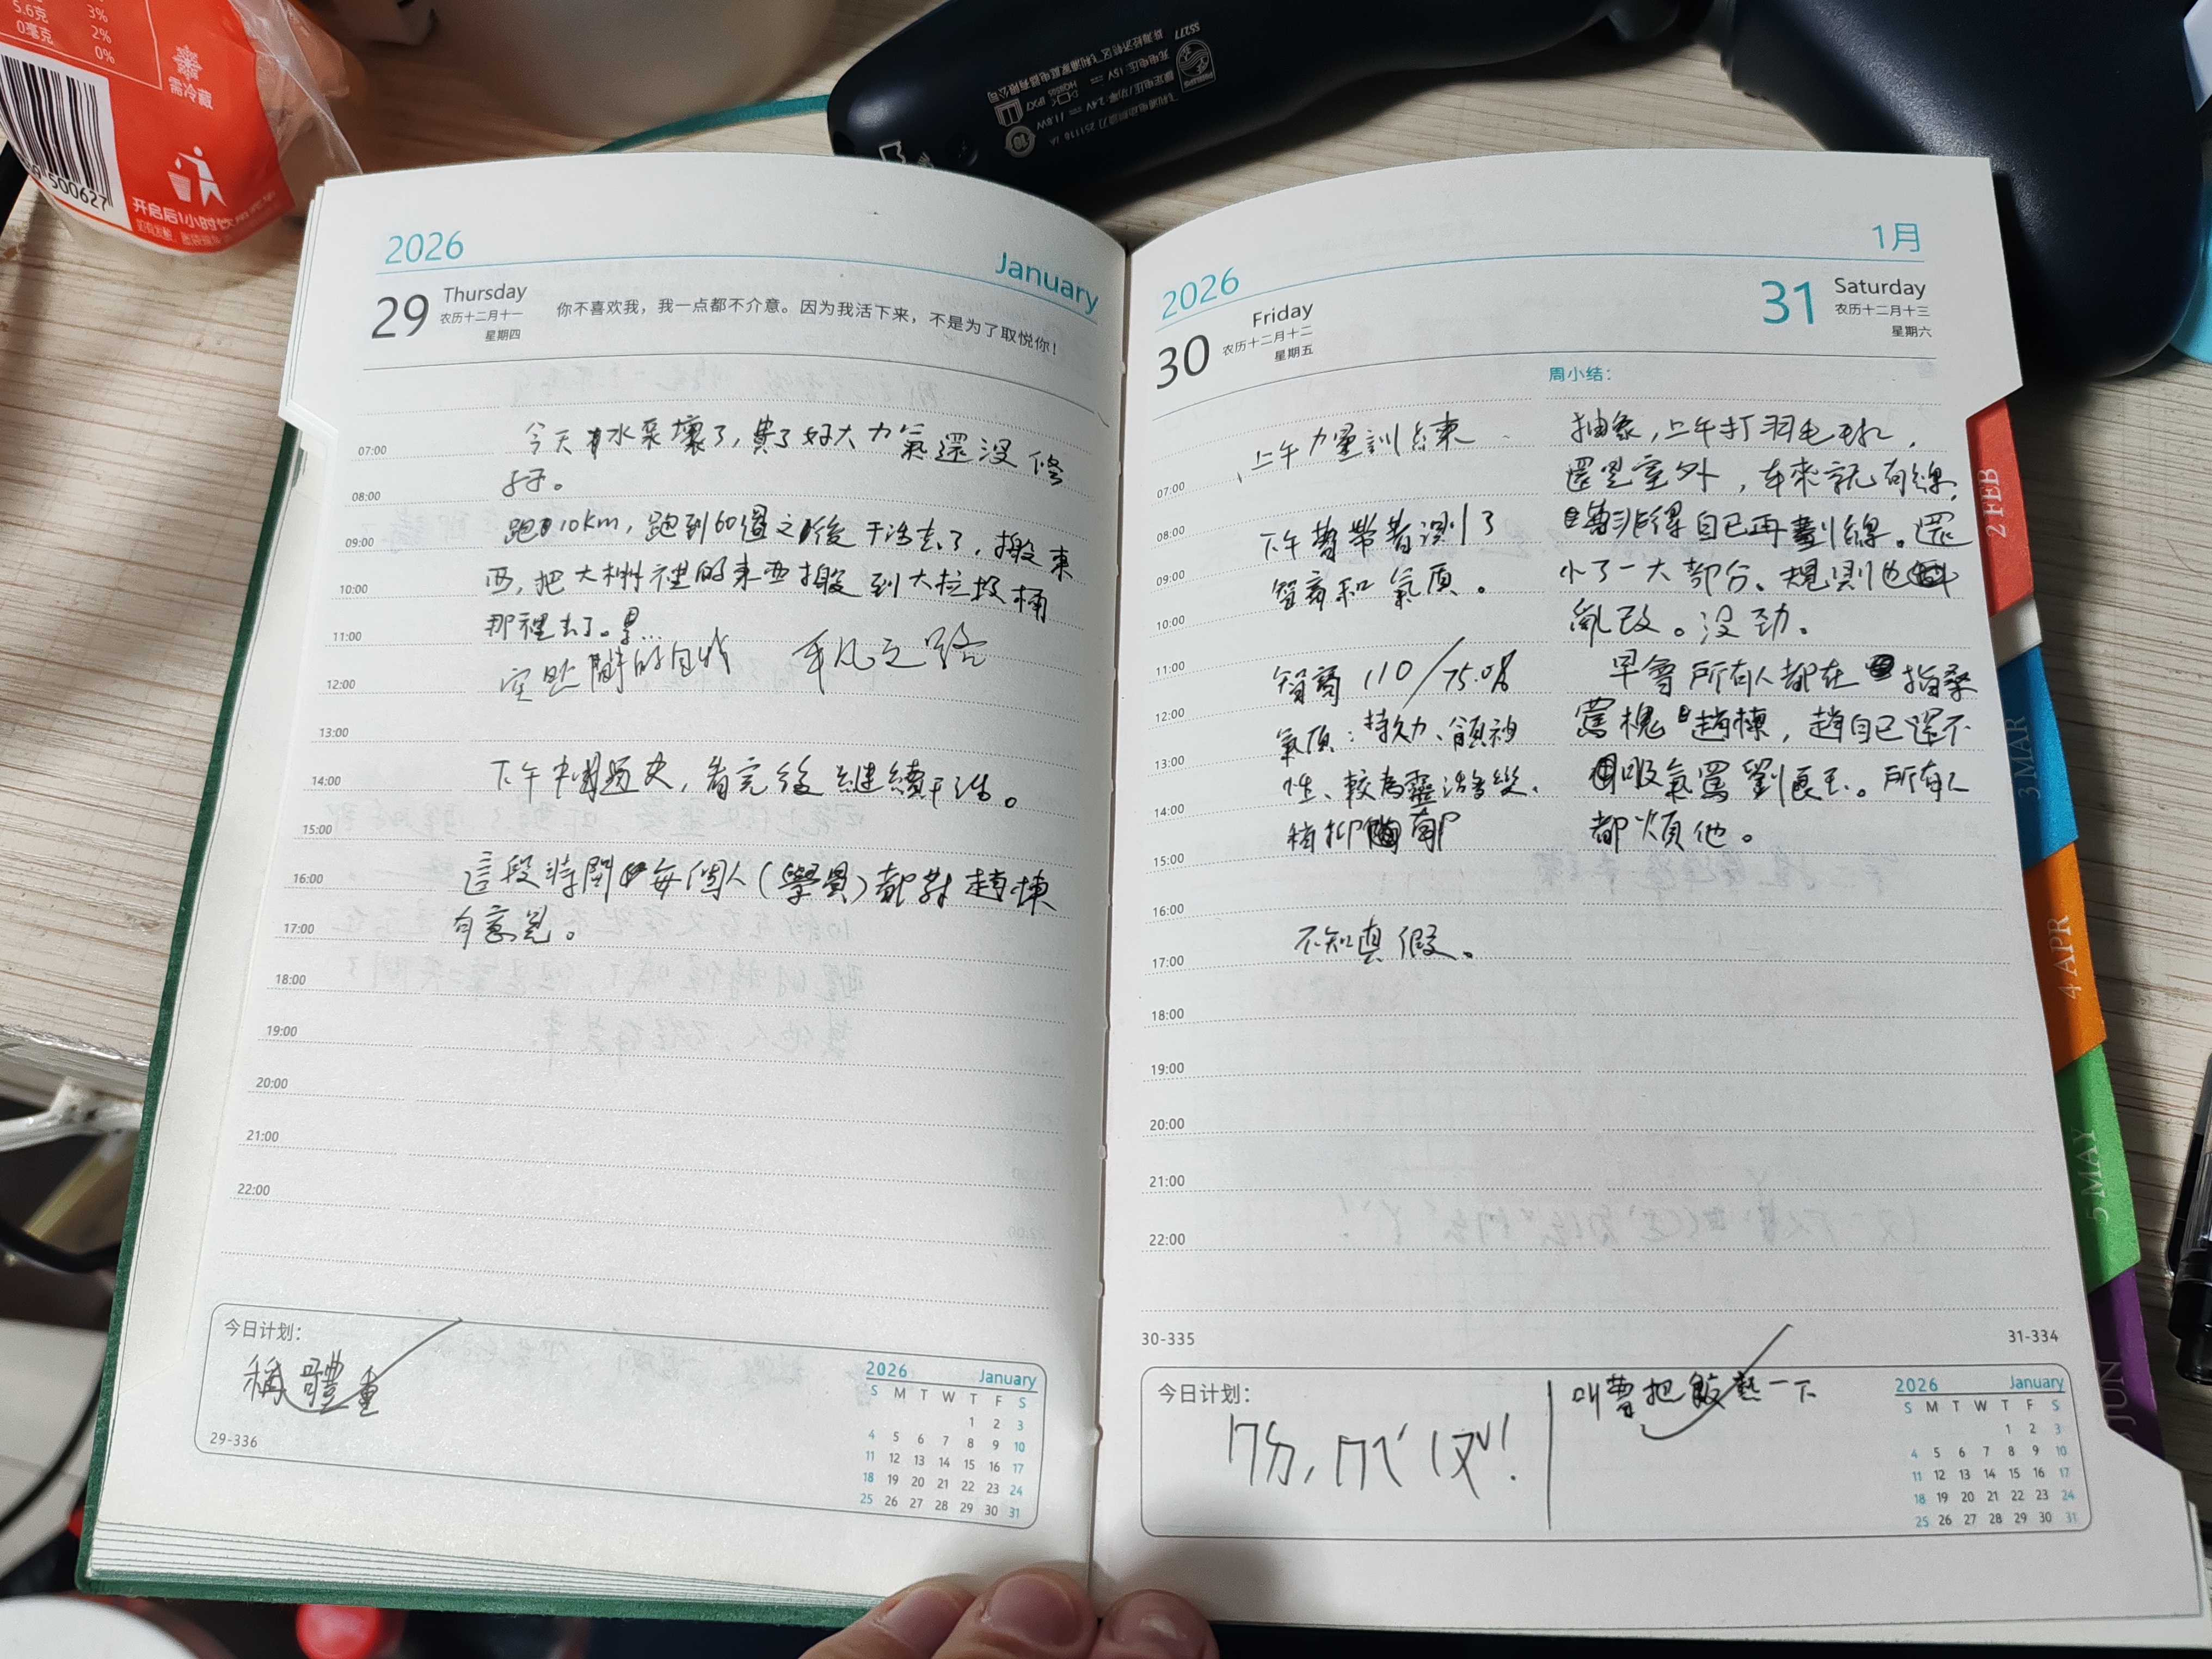 5.6克 3%
0毫克 2%
0%
需冷藏
500627
开启后1小时饮用完毕
2026 January
29 Thursday
农历十二月十一
星期四
你不喜欢我，我一点都不介意。因为我活下来，不是为了取悦你！
07:00
08:00
09:00
10:00
11:00
12:00
13:00
14:00
15:00
16:00
17:00
18:00
19:00
20:00
21:00
22:00
今天水泵壞了，費了好大力氣還沒修
好。
跑10km，跑到60圈之後干活去了，搬東
西，把大棚裡的東西搬到大垃圾桶
那裡去了。累…
空 的自 平凡之路
下午中國歷史，看完後繼續干活。
這段時間每個人（學員）都對趙棟
有意見。
今日计划：
稱體重
29-336
2026 January
S M T W T F S
1 2 3
4 5 6 7 8 9 10
11 12 13 14 15 16 17
18 19 20 21 22 23 24
25 26 27 28 29 30 31
2026 1月
30 Friday
农历十二月十二
星期五
31 Saturday
农历十二月十三
星期六
周小结：
07:00
08:00
09:00
10:00
11:00
12:00
13:00
14:00
15:00
16:00
17:00
18:00
19:00
20:00
21:00
22:00
上午力量訓練
下午曹帶着測了
智商和氣質。
智商 110/75.0%
氣質：持久力、領袖
性、較為靈活善變、
稍抑鬱
不知真假。
抽象，上午打羽毛球，
還是室外，本來就有線，
魯非得自己再劃線。還
小了一大部分、規則也
亂改。沒劲。
早會所有人都在指桑
罵槐趙棟，趙自己還不
吸氣罵劉 。所有人
都煩他。
30-335
31-334
今日计划：
ㄇㄞ，ㄇㄟˊ ㄧㄡˇ！
叫曹把飯熱一下
2026 January
S M T W T F S
1 2 3
4 5 6 7 8 9 10
11 12 13 14 15 16 17
18 19 20 21 22 23 24
25 26 27 28 29 30 31
2 FEB
3 MAR
4 APR
5 MAY
JUN
PHILIPS
SS277